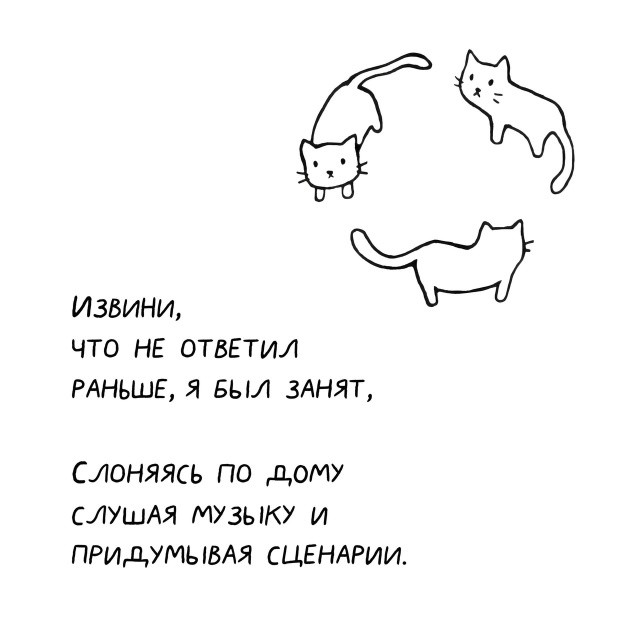 Извини,
что не ответил
раньше, я был занят,
Слоняясь по дому
слушая музыку и
придумывая сценарии.